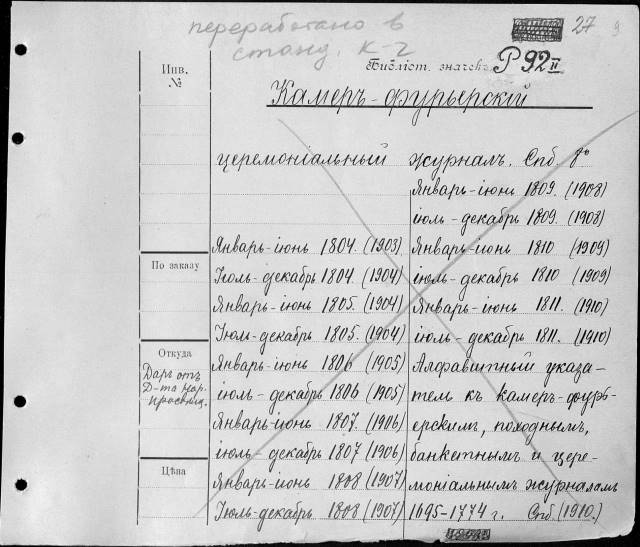 переработано в
станд. К-2
27
9
Инв.
№
Библіот. значекъ
Р 92 II
Камеръ-фурьерскій
церемоніальный журналъ. Спб. 8°
Январь-іюнь 1809. (1908)
іюль-декабрь 1809. (1908)
Январь-іюнь 1804. (1903)
Январь-іюнь 1810 (1909)
По заказу
Іюль-декабрь 1804. (1904)
іюль-декабрь 1810 (1909)
Январь-іюнь 1805. (1904)
Январь-іюнь 1811. (1910)
Іюль-декабрь 1805. (1904)
іюль-декабрь 1811. (1910)
Откуда
Даръ отъ
Д-та Нар.
Просвѣщ.
Январь-іюнь 1806 (1905)
Алфавитный указа-
іюль-декабрь 1806 (1905)
тель къ камеръ-фурь-
Январь-іюнь 1807. (1906)
ерскимъ, походнымъ,
іюль-декабрь 1807 (1906)
банкетнымъ и цере-
Цѣна
Январь-іюнь 1808 (1907)
моніальнымъ журналамъ
Іюль-декабрь 1808 (1907)
1695-1774 г. Спб. (1910.)